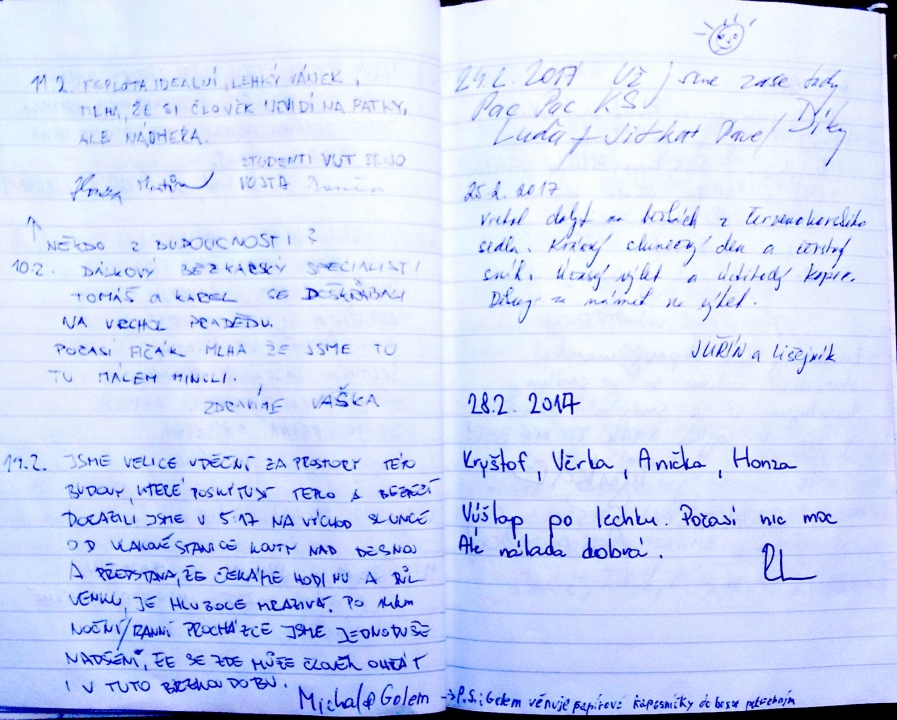 11.2. TEPLOTA IDEALNÍ, LEHKÝ VÁNEK,
MLHA, ŽE SI ČLOVĚK NEVIDÍ NA PATKY,
ALE NÁDHERA.
STUDENTI VUT BRNO
Honza Martin VOJTA
NĚKDO Z BUDOUCNOSTI?
10.2. DÁLKOVÝ BEZKAŘSKÝ SPECIALISTI
TOMÁŠ a KAREL SE DOŠKRÁBALI
NA VRCHOL PRADĚDU.
POČASÍ FIČÁK MLHA ŽE JSME TO
TU MÁLEM MINULI.
ZDRAVÍME VAŠKA
JSME VELICE VDĚČNÍ ZA PROSTORY TÉTO
BUDOVY, KTERÉ POSKYTUJÍ TEPLO A BEZPEČÍ
DORAZILI JSME V 5:17 NA VÝCHOD SLUNCE
OD VLAKOVÉ STANICE KOUTY NAD DESNOU
A PŘEDSTAVA, ŽE ČEKÁME HODINU A PŮL
VENKU, JE HLUBOCE MRAZIVÁ. PO
NOČNÍ/RANNÍ PROCHÁZCE JSME JEDNODUŠE
NADŠENÍ, ŽE SE ZDE MŮŽE ČLOVĚK OHŘÁT
I V TUTO BREZKOU DOBU.
Michal @ Golem → P.S.: Golem věnuje papírové kapesníčky do boxu potřebným
24.2. 2017 Už jsme zase tady
Pac Pac KS Díky
Luďa + Jitka + Pavel
25.2. 2017
Vrchol dobyt na
sedla. Krásný slunečný den a čerstvý
sníh. Úžasný výlet a
Děkuji za námět na výlet.
JUŘÍN a Lišejník
28.2. 2017
Kryštof, Věrka, Anička, Honza
Výšlap po lechku. Počasí nic moc
Ale nálada dobrá.